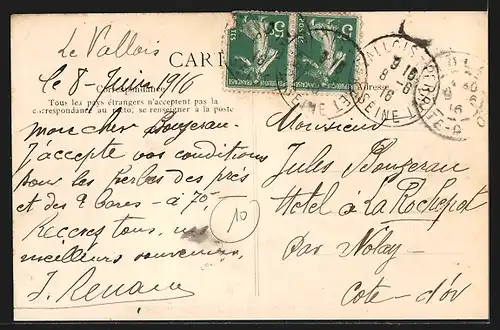 Le Vallois
le 8 - Juin 1916
CARTE
Correspondance
Adresse
Tous les pays étrangers n'acceptent pas la
correspondance au recto, se renseigner à la poste
mon cher Bougerau
J'accepte vos conditions
pour les herbes des prés
et des 9 - à 70,
Recevez tous, mes
meilleurs souvenirs,
J. Renaud
10
Monsieur
Jules Bougerau
Hotel à La Rochepot
par Nolay
Cote - d'or
5c 5c
POSTES
REPUBLIQUE FRANÇAISE